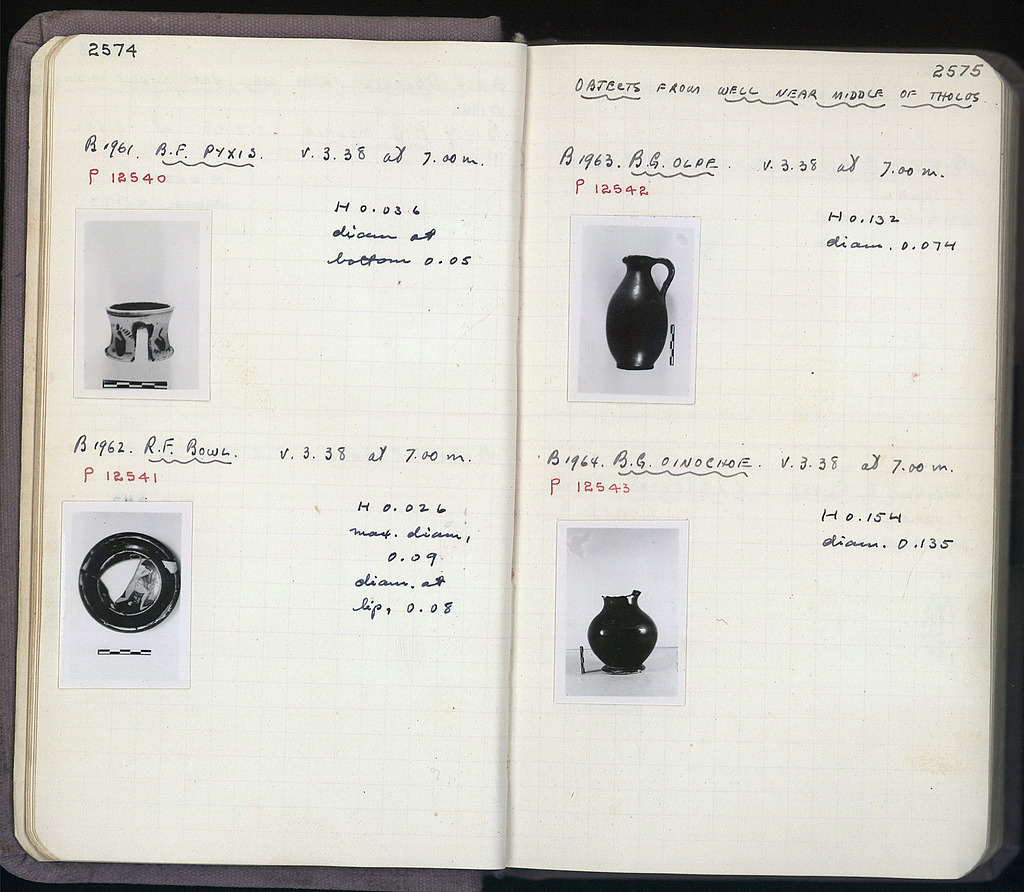 2574
B 1961. B.F. PYXIS. V. 3. 38 at 7.00 m.
P 12540
H 0.036
diam at
bottom 0.05
B 1962. R.F. BOWL. V. 3. 38 at 7.00 m.
P 12541
H 0.026
max. diam,
0.09
diam. at
lip, 0.08
2575
OBJECTS FROM WELL NEAR MIDDLE OF THOLOS
B 1963. B.G. OLPE. V. 3. 38 at 7.00 m.
P 12542
H 0.132
diam. 0.074
B 1964. B.G. OINOCHOE. V. 3. 38 at 7.00 m.
P 12543
H 0.154
diam. 0.135